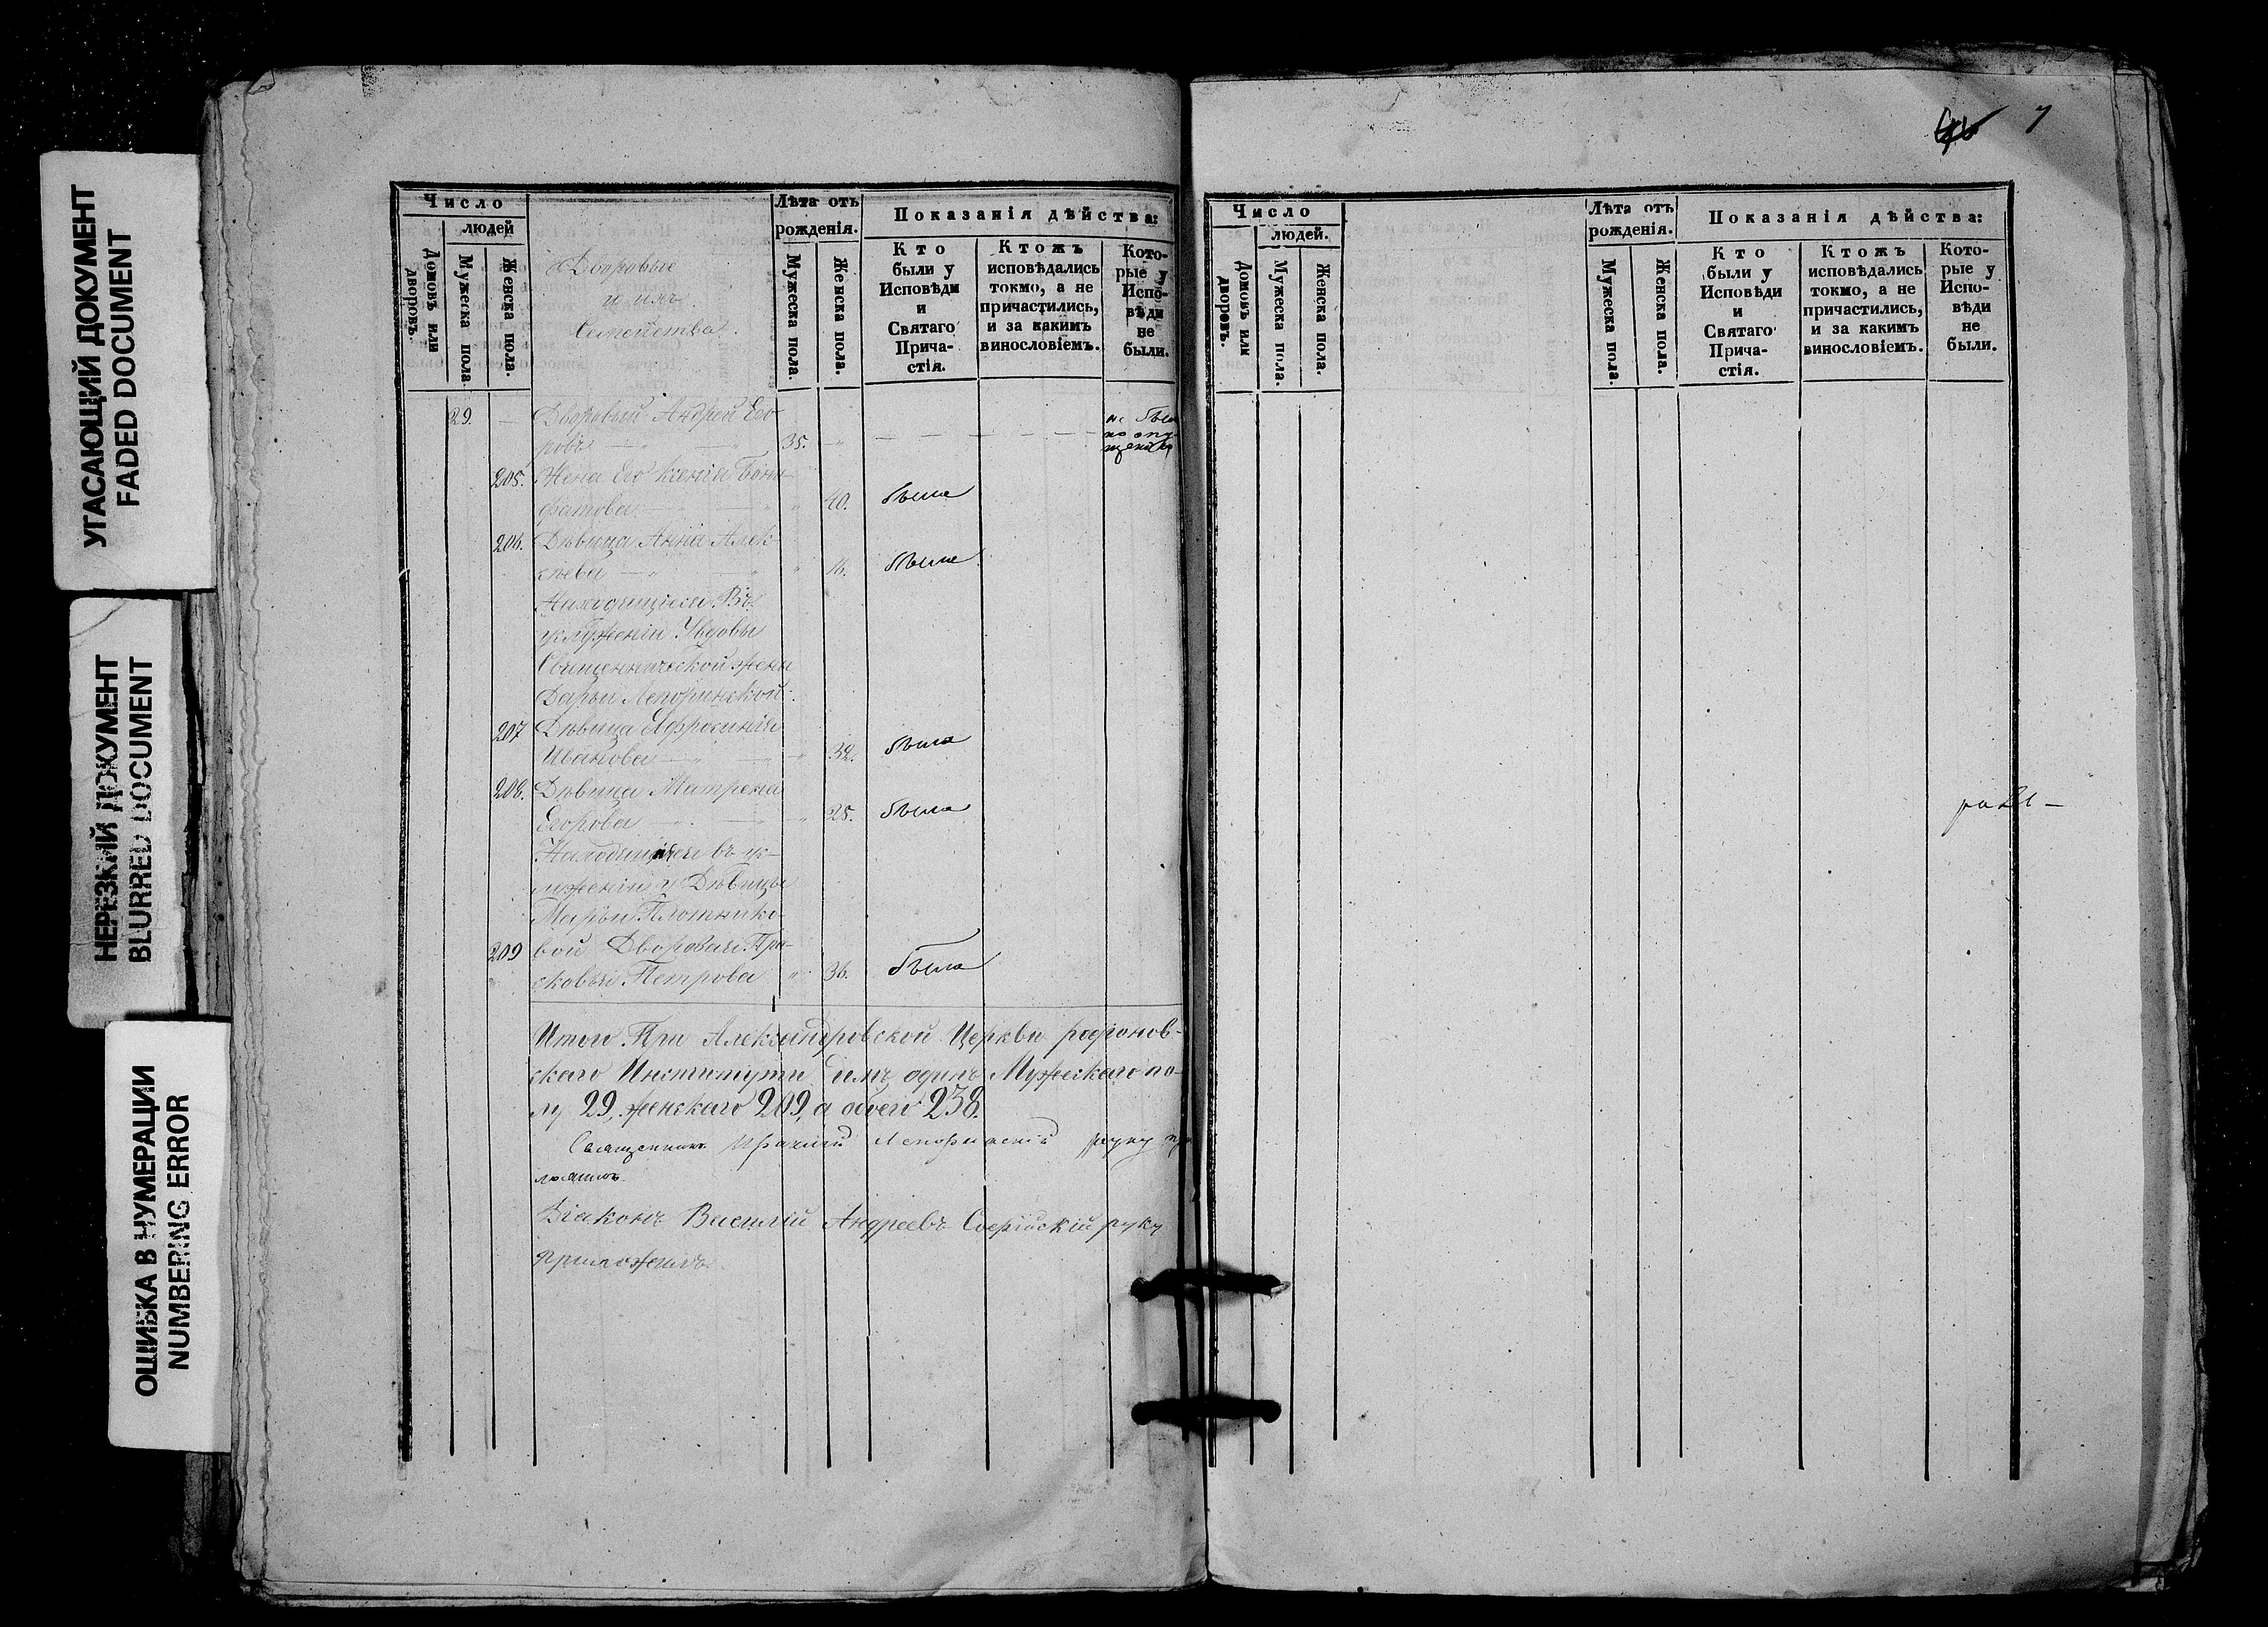 УГАСАЮЩИЙ ДОКУМЕНТ
FADED DOCUMENT
НЕРЕЗКИЙ ДОКУМЕНТ
BLURRED DOCUMENT
ОШИБКА В НУМЕРАЦИИ
NUMBERING ERROR
Число
людей
Домовъ или дворовъ.
Мужеска пола.
Женска пола.
Дворовые
и ихъ
Семейства.
Лѣта отъ
рожденія.
Мужеска пола.
Женска пола.
Показанія дѣйства:
Кто
были у
Исповѣди
и
Святаго
Прича-
стія.
Ктожъ
исповѣдались
токмо, а не
причастились,
и за какимъ
винословіемъ.
Кото-
рые у
Испо-
вѣди
не
были.
29. — Дворовый Андрей Его-
ровъ 35.
не былъ
по опу-
щенію
205. Жена Его Ксенія Бони-
фатова 40. была
206. Дѣвица Анна Алек-
сѣева 16. была
Находящіяся Въ
услуженіи Удовы
Священнической жены
Дарьи Лепоринской:
207 Дѣвица Афросинія
Иванова 32. была
208. Дѣвица Матрена
Егорова 25. была
Находящіяся въ ус-
луженіи у Дѣвицы
Марьи Плотнико-
209 вой Дворовая Пра-
сковья Петрова 36. была
Итого При Александровской Церкви
скаго Института домъ одинъ Мужескаго по-
лу 29, женскаго 209, а обоего 238.
Священникъ Лепоринскій руку при
ложилъ.
Діаконъ Василій Андреевъ Софійскій руку
приложилъ.
7
Число
людей.
Домовъ или дворовъ.
Мужеска пола.
Женска пола.
Лѣта отъ
рожденія.
Мужеска пола.
Женска пола.
Показанія дѣйства:
Кто
были у
Исповѣди
и
Святаго
Прича-
стія.
Ктожъ
исповѣдались
токмо, а не
причастились,
и за какимъ
винословіемъ.
Кото-
рые у
Испо-
вѣди
не
были.